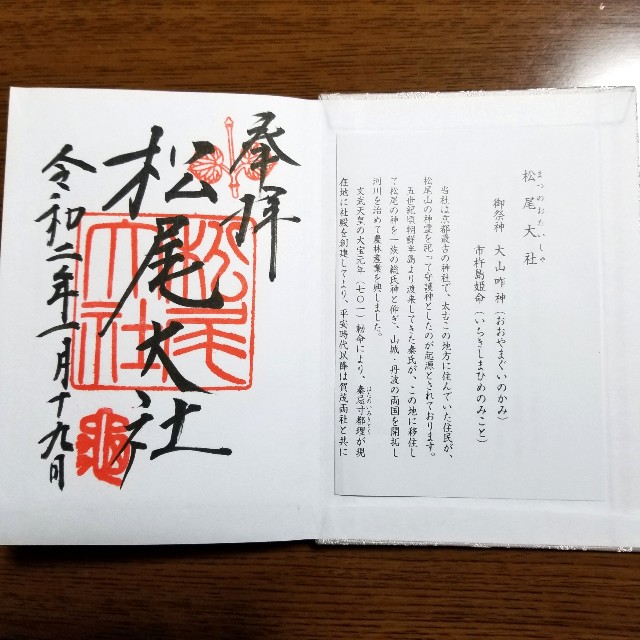 奉拝
松尾大社
令和二年一月十九日
松尾大社
まつのおたいしゃ
松尾大社
御祭神 大山咋神(おおやまぐいのかみ)
市杵島姫命(いちきしまひめのみこと)
当社は京都最古の神社で、太古この地方に住んでいた住民が、
松尾山の神霊を祀って守護神としたのが起源とされております。
五世紀頃朝鮮半島より渡来してきた秦氏が、この地に移住し
て松尾の神を一族の総氏神と仰ぎ、山城・丹波の両国を開拓し
河川を治めて農林産業を興しました。
文武天皇の大宝元年(七〇一)勅命により、秦忌寸都理が現
はたのいみきとり
在地に社殿を創建してより、平安時代以降は賀茂両社と共に